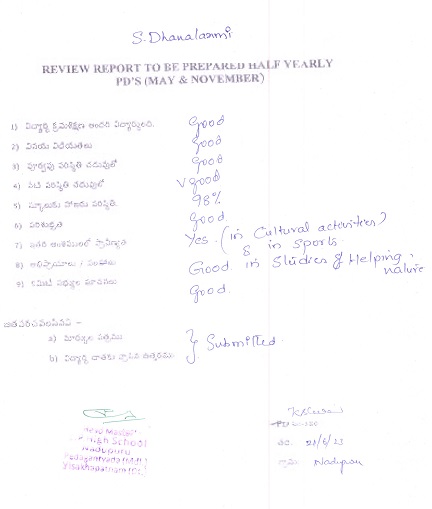 S. Dhanalaxmi
REVIEW REPORT TO BE PREPARED HALF YEARLY
PD'S (MAY & NOVEMBER)
1) విద్యార్థి క్రమశిక్షణ అందరి విద్యార్థులతో. Good
2) వినయ విధేయతలు Good
3) పూర్వపు పరిస్థితి చదువులో Good
4) నేటి పరిస్థితి చదువులో V good
5) స్కూలుకు హాజరు పరిస్థితి. 98%
6) పరిశుభ్రత Good.
7) ఇతర అంశములలో ప్రావీణ్యత Yes. (in Cultural activities)
& in sports.
8) అభిప్రాయాలు / సలహాలు Good in Studies & Helping,
nature
9) కమిటీ సభ్యుల సూచనలు Good.
జతపరచవలసినవి :-
a) మార్కుల పత్రము
b) విద్యార్థి దాతకు వ్రాసిన ఉత్తరము. } Submitted.
Head Master
High School
Nadupuru
Pedagantyada (Mdl.)
Visakhapatnam (Dt.)